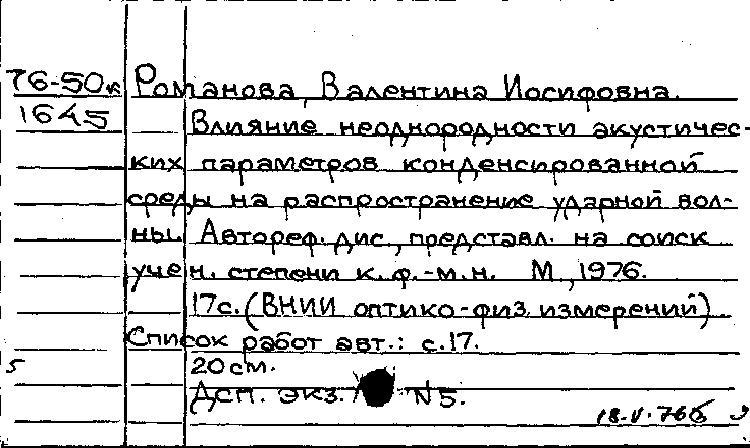 76-50к Романова, Валентина Иосифовна.
1645 Влияние неоднородности акустичес-
ких параметров конденсированной
среды на распространение ударной вол-
ны. Автореф. дис., представл. на соиск
учен. степени к.ф.-м.н. М., 1976.
17с. (ВНИИ оптико-физ. измерений)
Список работ авт.: с.17.
5 20 см.
Дсп. экз. N5.
18.V.76